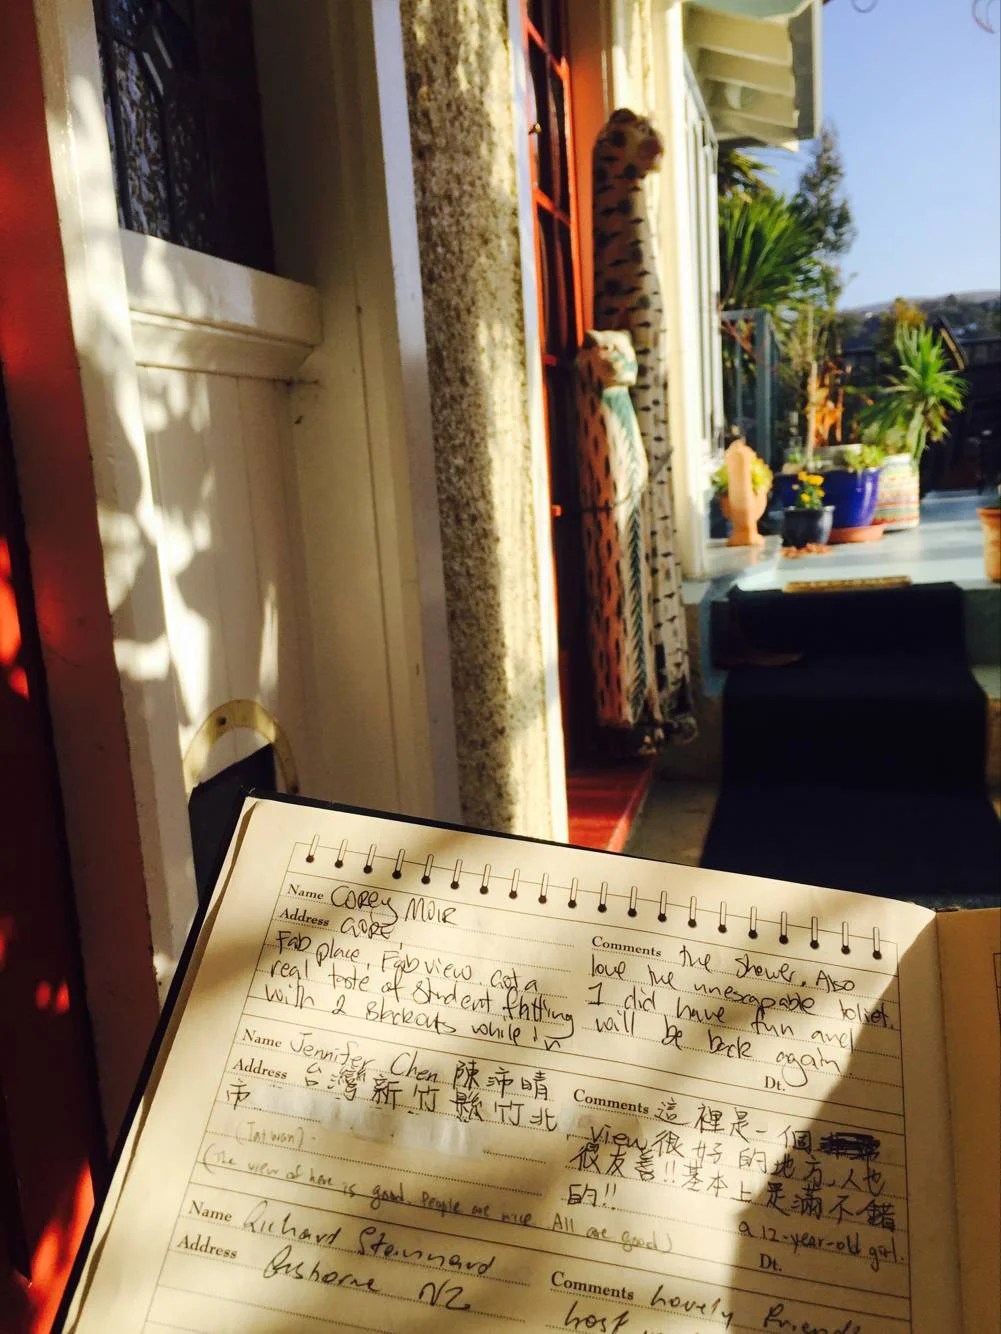 Name Corey Moir
Address GORE,
Fab place, Fab view. Got a
real taste of student flatting
with 2 blackouts while in
Comments the shower. Also
love the unescapable toilet.
I did have fun and
will be back again.
Dt.
Name Jennifer Chen 陳沛晴
Address 台灣新竹縣竹北
市
(Taiwan).
(The view of here is good. People are nice. All are good)
Comments 這裡是一個
view很好的地方,人也
很友善!!基本上是滿不錯
的!!
a 12-year-old girl.
Dt.
Name Richard Stannard
Address Gisborne NZ
Comments Lovely Friendly
host